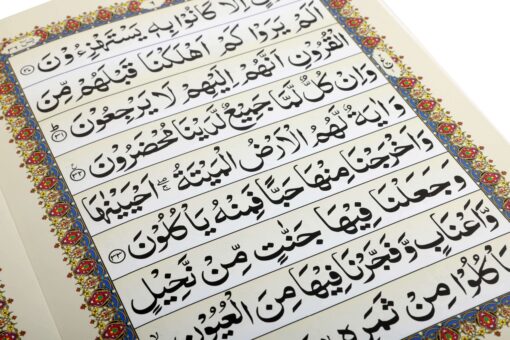 اِلَّا كَانُوْا بِهٖ يَسْتَهْزِءُوْنَ ﴿٣٠﴾
اَلَمْ يَرَوْا كَمْ اَهْلَكْنَا قَبْلَهُمْ مِّنَ
الْقُرُوْنِ اَنَّهُمْ اِلَيْهِمْ لَا يَرْجِعُوْنَ ﴿٣١﴾
وَاِنْ كُلٌّ لَّمَّا جَمِيْعٌ لَّدَيْنَا مُحْضَرُوْنَ ﴿٣٢﴾
وَاٰيَةٌ لَّهُمُ الْاَرْضُ الْمَيْتَةُ اَحْيَيْنٰهَا
وَاَخْرَجْنَا مِنْهَا حَبًّا فَمِنْهُ يَاْكُلُوْنَ ﴿٣٣﴾
وَجَعَلْنَا فِيْهَا جَنّٰتٍ مِّنْ نَّخِيْلٍ
وَّاَعْنَابٍ وَّفَجَّرْنَا فِيْهَا مِنَ الْعُيُوْنِ
يَاْكُلُوْا مِنْ ثَمَرِهٖ